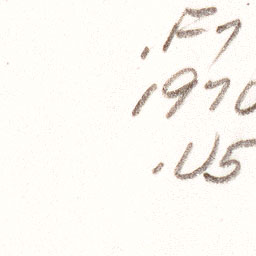 .F7
1970
.U5